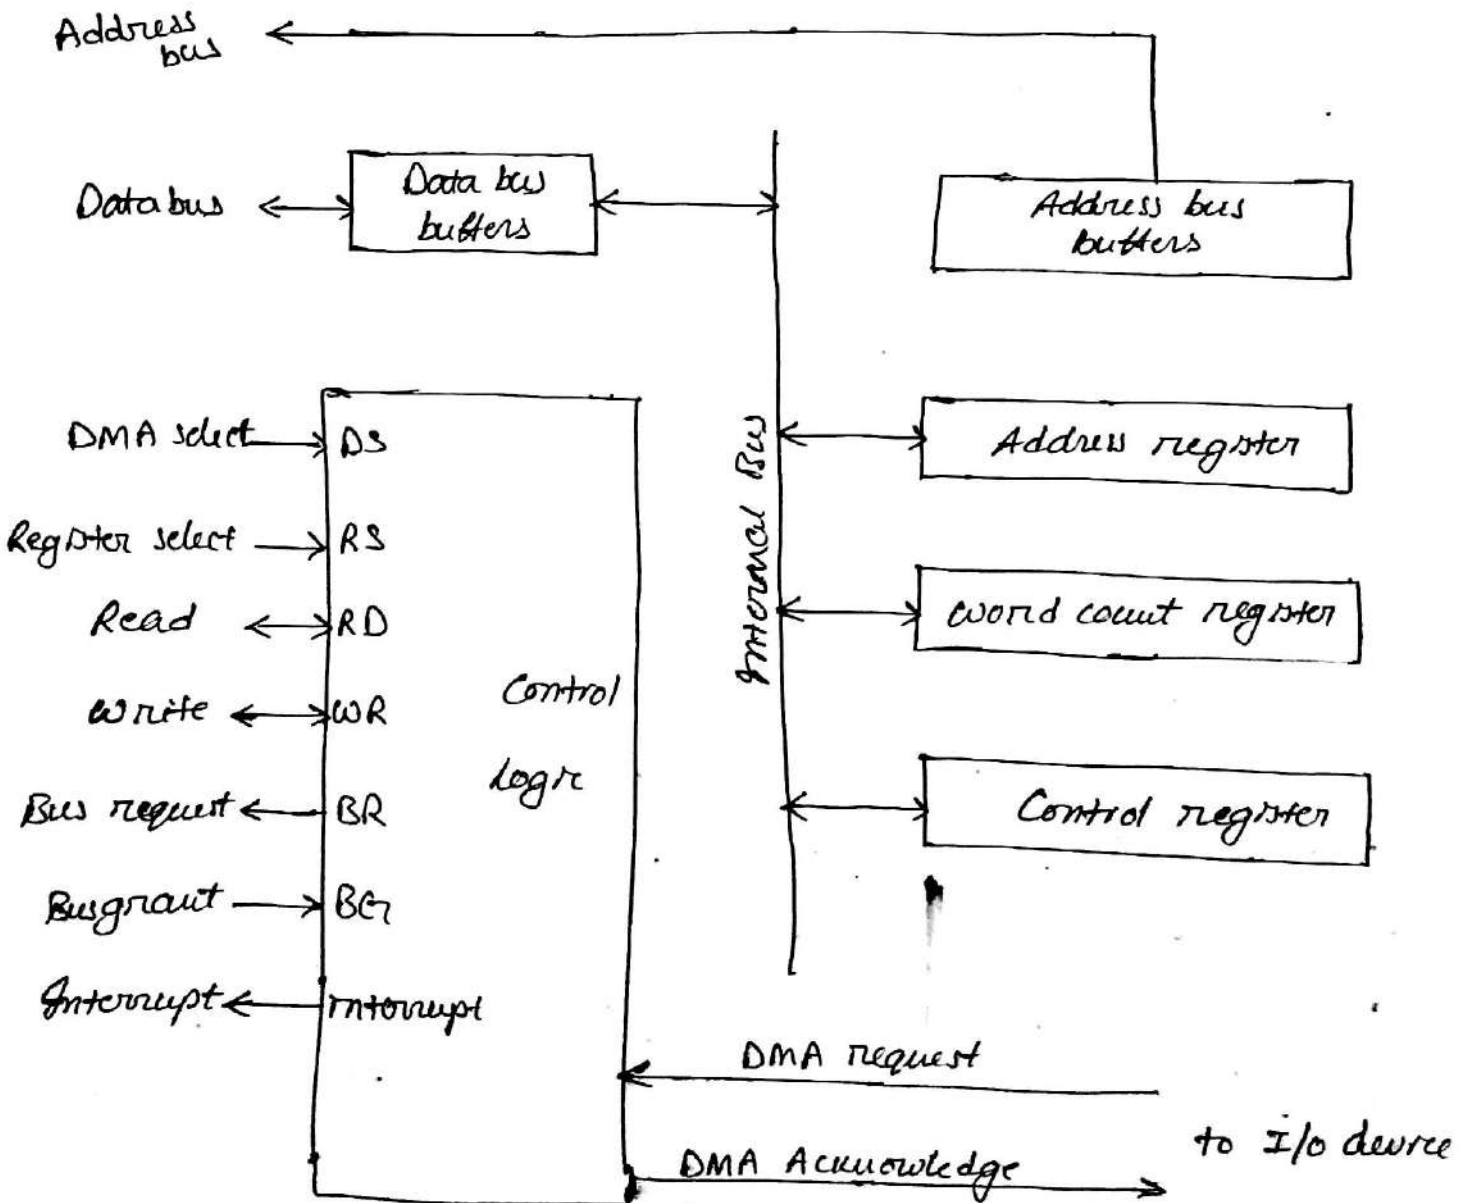 Address
bus
Data bus
Data bus
buffers
Address bus
buffers
DMA select
DS
Register select
RS
Read
RD
Write
WR
Bus request
BR
Bus grant
BG
Interrupt
Interrupt
Control
Logic
Internal Bus
Address register
word count register
Control register
DMA request
DMA Acknowledge
to I/o device